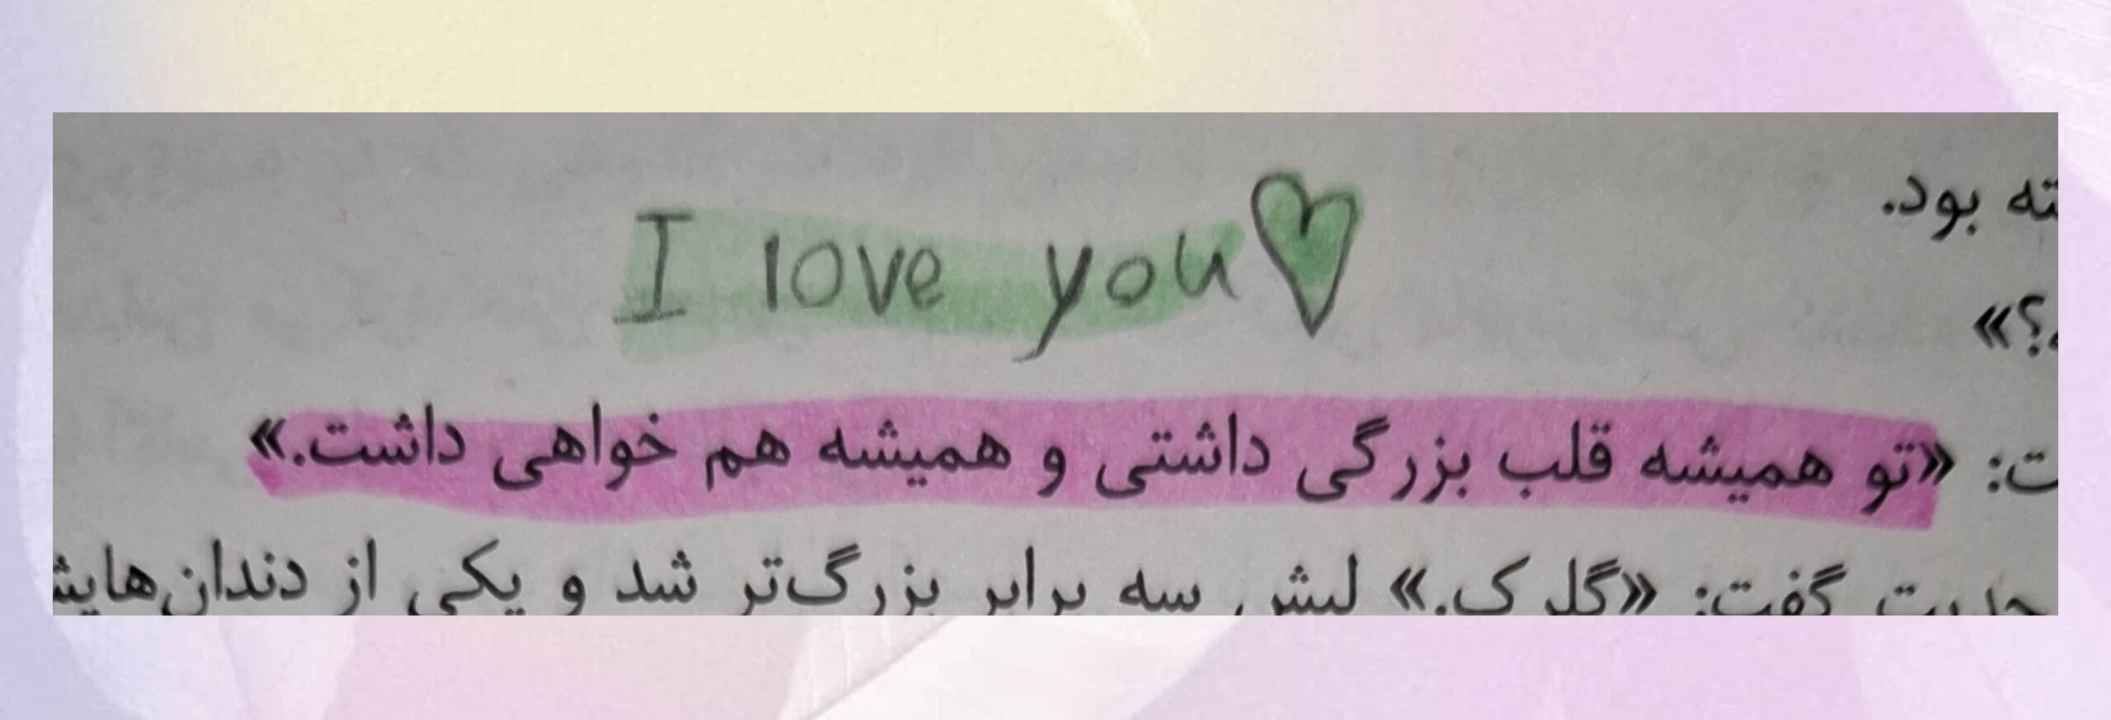 ته بود.
I love you
؟»
ت: «تو همیشه قلب بزرگی داشتی و همیشه هم خواهی داشت.»
گفت: «گلرک.» لبش سه برابر بزرگ‌تر شد و یکی از دندان‌هایش